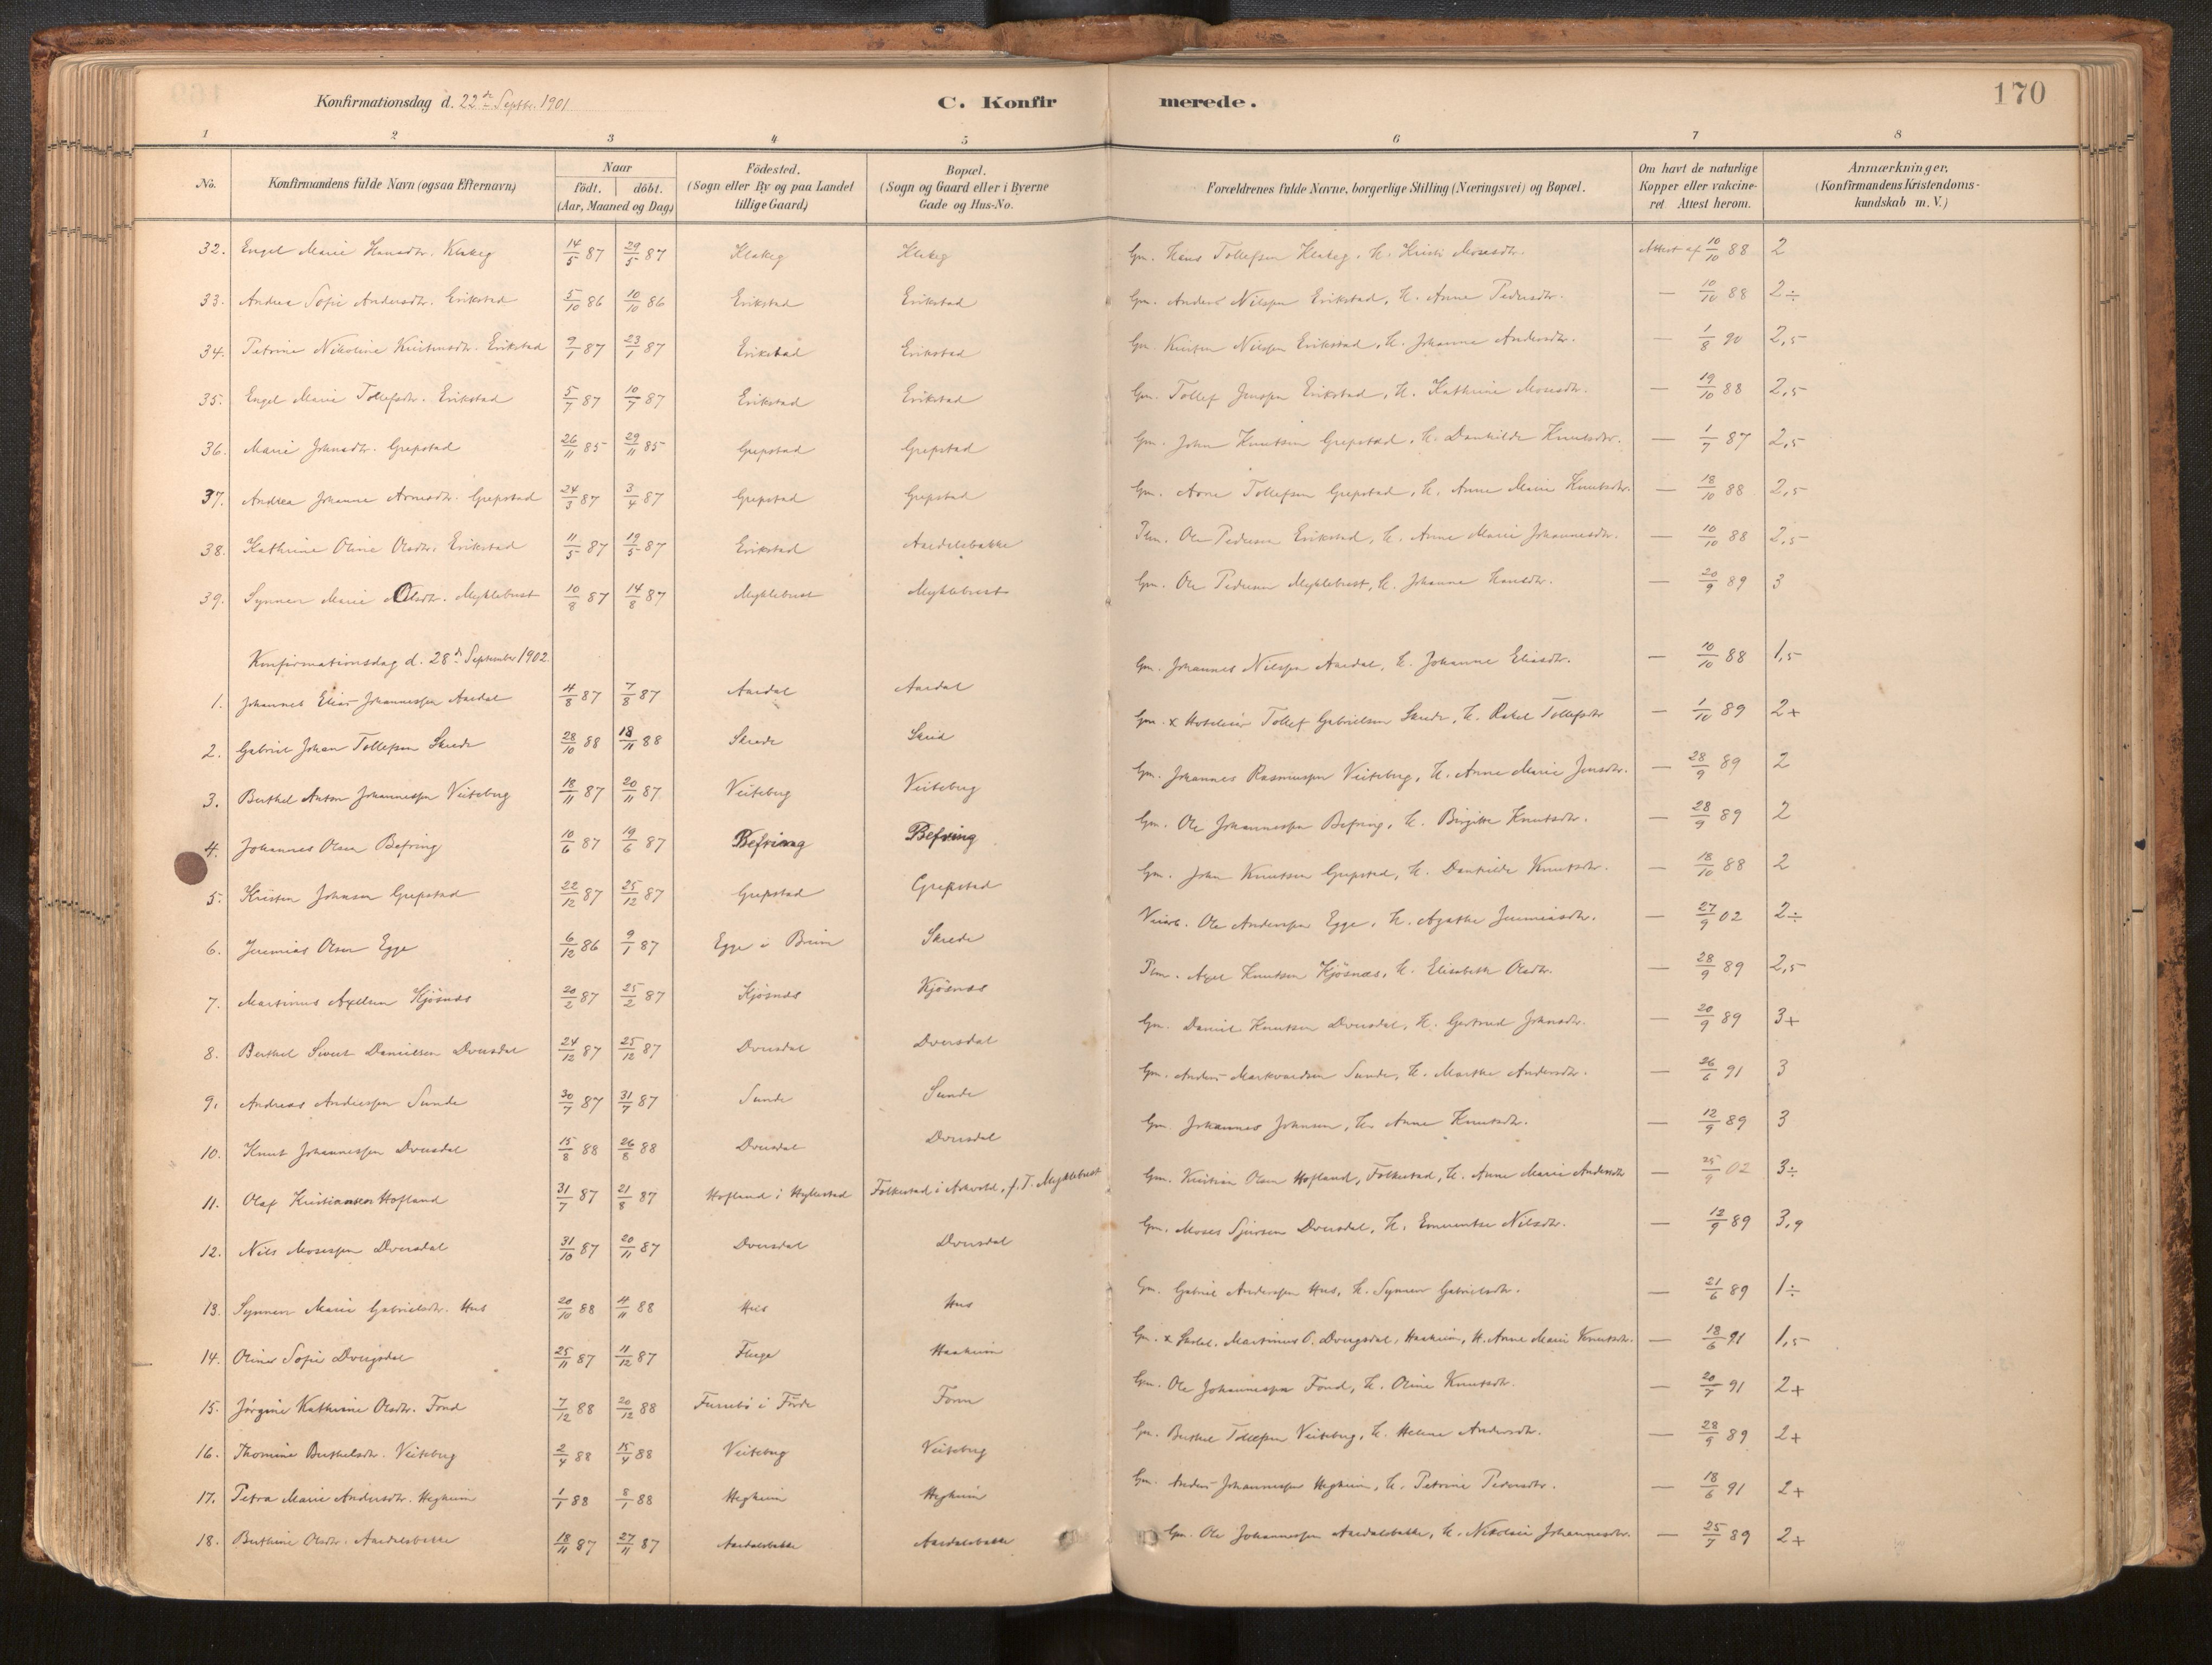 Konfirmationsdag d. 22de Septbr. 1901
C. Konfirmerede.
170
1 2 3 4 5 6 7 8
No. Konfirmandens fulde Navn (ogsaa Efternavn) Naar födt. döbt. (Aar, Maaned og Dag) Födested. (Sogn eller By og paa Landet tillige Gaard) Bopæl. (Sogn og Gaard eller i Byerne Gade og Hus-No. Forældrenes fulde Navne, borgerlige Stilling (Næringsvei) og Bopæl. Om havt de naturlige Kopper eller vakcineret Attest herom. Anmærkninger, (Konfirmandens Kristendomskundskab m. V.)
32. Engel Marie Hansdtr. Klakeg 14/5 87 29/5 87 Klakeg Klakeg Gm. Hans Tollefsen Klakeg, H. Kristi Mosesdtr. Attest af 10/10 88 2
33. Andrea Sofie Andersdtr. Erikstad 5/10 86 10/10 86 Erikstad Erikstad Gm. Anders Nilssen Erikstad, H. Anne Pedersdtr. — 10/10 88 2÷
34. Petrine Nikoline Kristensdtr. Erikstad 9/1 87 23/1 87 Erikstad Erikstad Gm. Kristen Nilssen Erikstad, H. Johanna Andersdtr. — 1/8 90 2,5
35. Engel Marie Tollefsdtr. Erikstad 5/7 87 10/7 87 Erikstad Erikstad Gm. Tollef Jenssen Erikstad, H. Kathrine Mosesdtr. — 19/10 88 2,5
36. Marie Johnsdtr. Grepstad 26/11 85 29/11 85 Grepstad Grepstad Gm. John Knutsen Grepstad, H. Dankilde Knutsdtr. — 1/7 87 2,5
37. Andrea Johanne Arnesdtr. Grepstad 24/3 87 3/4 87 Grepstad Grepstad Gm. Arne Tollefsen Grepstad, H. Anne Marie Knutsdtr. — 18/10 88 2,5
38. Kathrine Oline Olsdtr. Erikstad 11/5 87 19/5 87 Erikstad Aardalsbakke Plm. Ole Pedersen Erikstad, H. Anne Marie Johannesdtr. — 10/10 88 2,5
39. Synnev Marie Olsdtr. Myklebust 10/8 87 14/8 87 Myklebust Myklebust Gm. Ole Pedersen Myklebust, H. Johanne Hansdtr. — 20/9 89 3
Konfirmationsdag d. 28de September 1902
1. Johannes Elias Johannessen Aardal 4/8 87 7/8 87 Aardal Aardal Gm. Johannes Nilssen Aardal, H. Johanne Eliasdtr. — 10/10 88 1,5
2. Gabriel Johan Tollefsen Skrede 28/10 88 18/11 88 Skrede Skrede Gm. x Hoteleier Tollef Gabrielsen Skrede, H. Rakel Tollefsdtr — 1/10 89 2+
3. Berthel Anton Johannessen Veiteberg 18/11 87 20/11 87 Veiteberg Veiteberg Gm. Johannes Rasmussen Veiteberg, H. Anne Marie Jensdtr. — 28/9 89 2
4. Johannes Olsen Befring 10/6 87 19/6 87 Befring Befring Gm. Ole Johannessen Befring, H. Birgitte Knutsdtr. — 28/9 89 2
5. Kristen Johnsen Grepstad 22/12 87 25/12 87 Grepstad Grepstad Gm. John Knutsen Grepstad, H. Dankilde Knutsdtr. — 18/10 88 2
6. Jeremias Olsen Egge 6/12 86 9/1 87 Egge i Breim Skrede Ole Anderssen Egge, H. Agathe Jeremiasdtr. — 27/9 02 2÷
7. Martinus Axelsen Kjösnes 20/2 87 25/2 87 Kjösnes Kjösnes Plm. Axel Knutsen Kjösnæs, H. Elisabeth Olsdtr. — 28/9 89 2,5
8. Berthel Sivert Danielsen Dversdal 24/12 87 25/12 87 Dversdal Dversdal Gm. Daniel Knutsen Dversdal, H. Gertrud Johnsdtr. — 20/9 89 3+
9. Andreas Anderssen Sunde 30/7 87 31/7 87 Sunde Sunde Gm. Anders Markvardsen Sunde, H. Marthe Andersdtr. — 26/6 91 3
10. Knut Johannessen Dversdal 15/8 88 26/8 88 Dversdal Dversdal Gm. Johannes Johnsen, H. Anne Knutsdtr. — 12/9 89 3
11. Olaf Kristiansen Hofland 31/7 87 21/8 87 Hofland i Hyllestad Folkestad i Askvold, f. T. Myklebust Gm. Kristian Olsen Hofland, Folkestad, H. Anne Marie Andersdtr — 25/9 02 3÷
12. Nils Mosessen Dversdal 31/10 87 20/11 87 Dversdal Dversdal Gm. Moses Sjursen Dversdal, H. Emerentse Nilsdtr. — 12/9 89 3,9
13. Synnev Marie Gabrielsdtr. Hus 20/10 88 4/11 88 Hus Hus Gm. Gabriel Anderssen Hus, H. Synnev Gabrielsdtr. — 21/6 89 1÷
14. Oline Sofie Dvergsdal 25/11 87 11/12 87 Fluge Haaheim Gm. x Martinus O. Dvergsdal, Haaheim, H. Anne Marie Knutsdtr. — 18/6 91 1,5
15. Jörgine Kathrine Olsdtr. Fond 7/12 88 20/12 88 Furebö i Förde Fonn Gm. Ole Johannessen Fond, H. Oline Knutsdtr. — 20/7 91 2+
16. Thomine Berthelsdtr. Veiteberg 2/4 88 15/4 88 Veiteberg Veiteberg Gm. Berthel Tollefsen Veiteberg, H. Helene Andersdtr. — 28/9 89 2+
17. Petra Marie Andersdtr. Hegheim 1/1 88 8/1 88 Hegheim Hegheim Gm. Anders Johannessen Hegheim, H. Petrine Pedersdtr. — 18/6 91 2+
18. Berthine Olsdtr. Aardalsbakke 18/11 87 27/11 87 Aardalsbakke Aardalsbakke Gm. Ole Johannessen Aardalsbakke, H. Nikoline Johannesdtr. — 25/7 89 2+